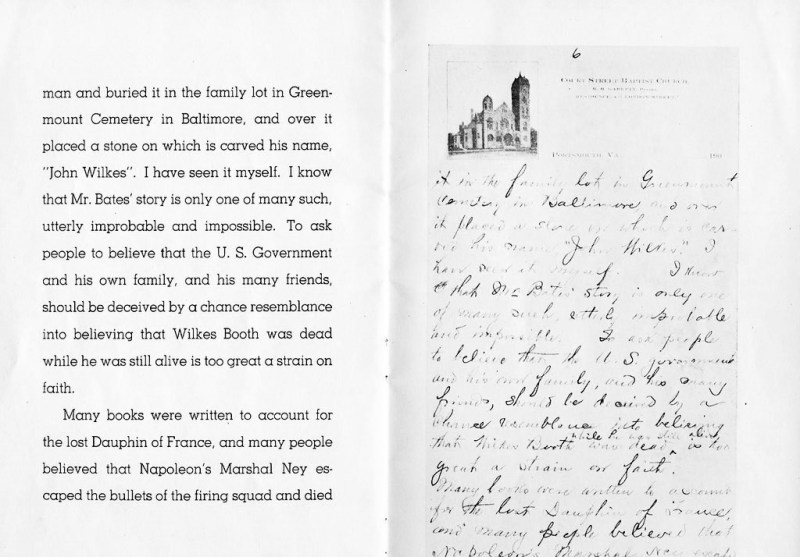 man and buried it in the family lot in Green-
mount Cemetery in Baltimore, and over it
placed a stone on which is carved his name,
"John Wilkes". I have seen it myself. I know
that Mr. Bates' story is only one of many such,
utterly improbable and impossible. To ask
people to believe that the U. S. Government
and his own family, and his many friends,
should be deceived by a chance resemblance
into believing that Wilkes Booth was dead
while he was still alive is too great a strain on
faith.
Many books were written to account for
the lost Dauphin of France, and many people
believed that Napoleon's Marshal Ney es-
caped the bullets of the firing squad and died
6
COURT STREET BAPTIST CHURCH
PORTSMOUTH, VA. 190
it in the family lot in Greenmount
Cemetery in Baltimore and over
it placed a stone on which is car-
ved his name "John Wilkes." I
have seen it myself. I know
that Mr Bates' story is only one
of many such, utterly improbable
and impossible. To ask people
to believe that the U. S. government
and his own family, and his many
friends, should be deceived by a
chance resemblance into believing
that Wilkes Booth was dead, while he was still alive, is too
great a strain on faith.
Many books were written to account
for the lost Dauphin of France,
and many people believed that
Napoleon's Marshal Ney